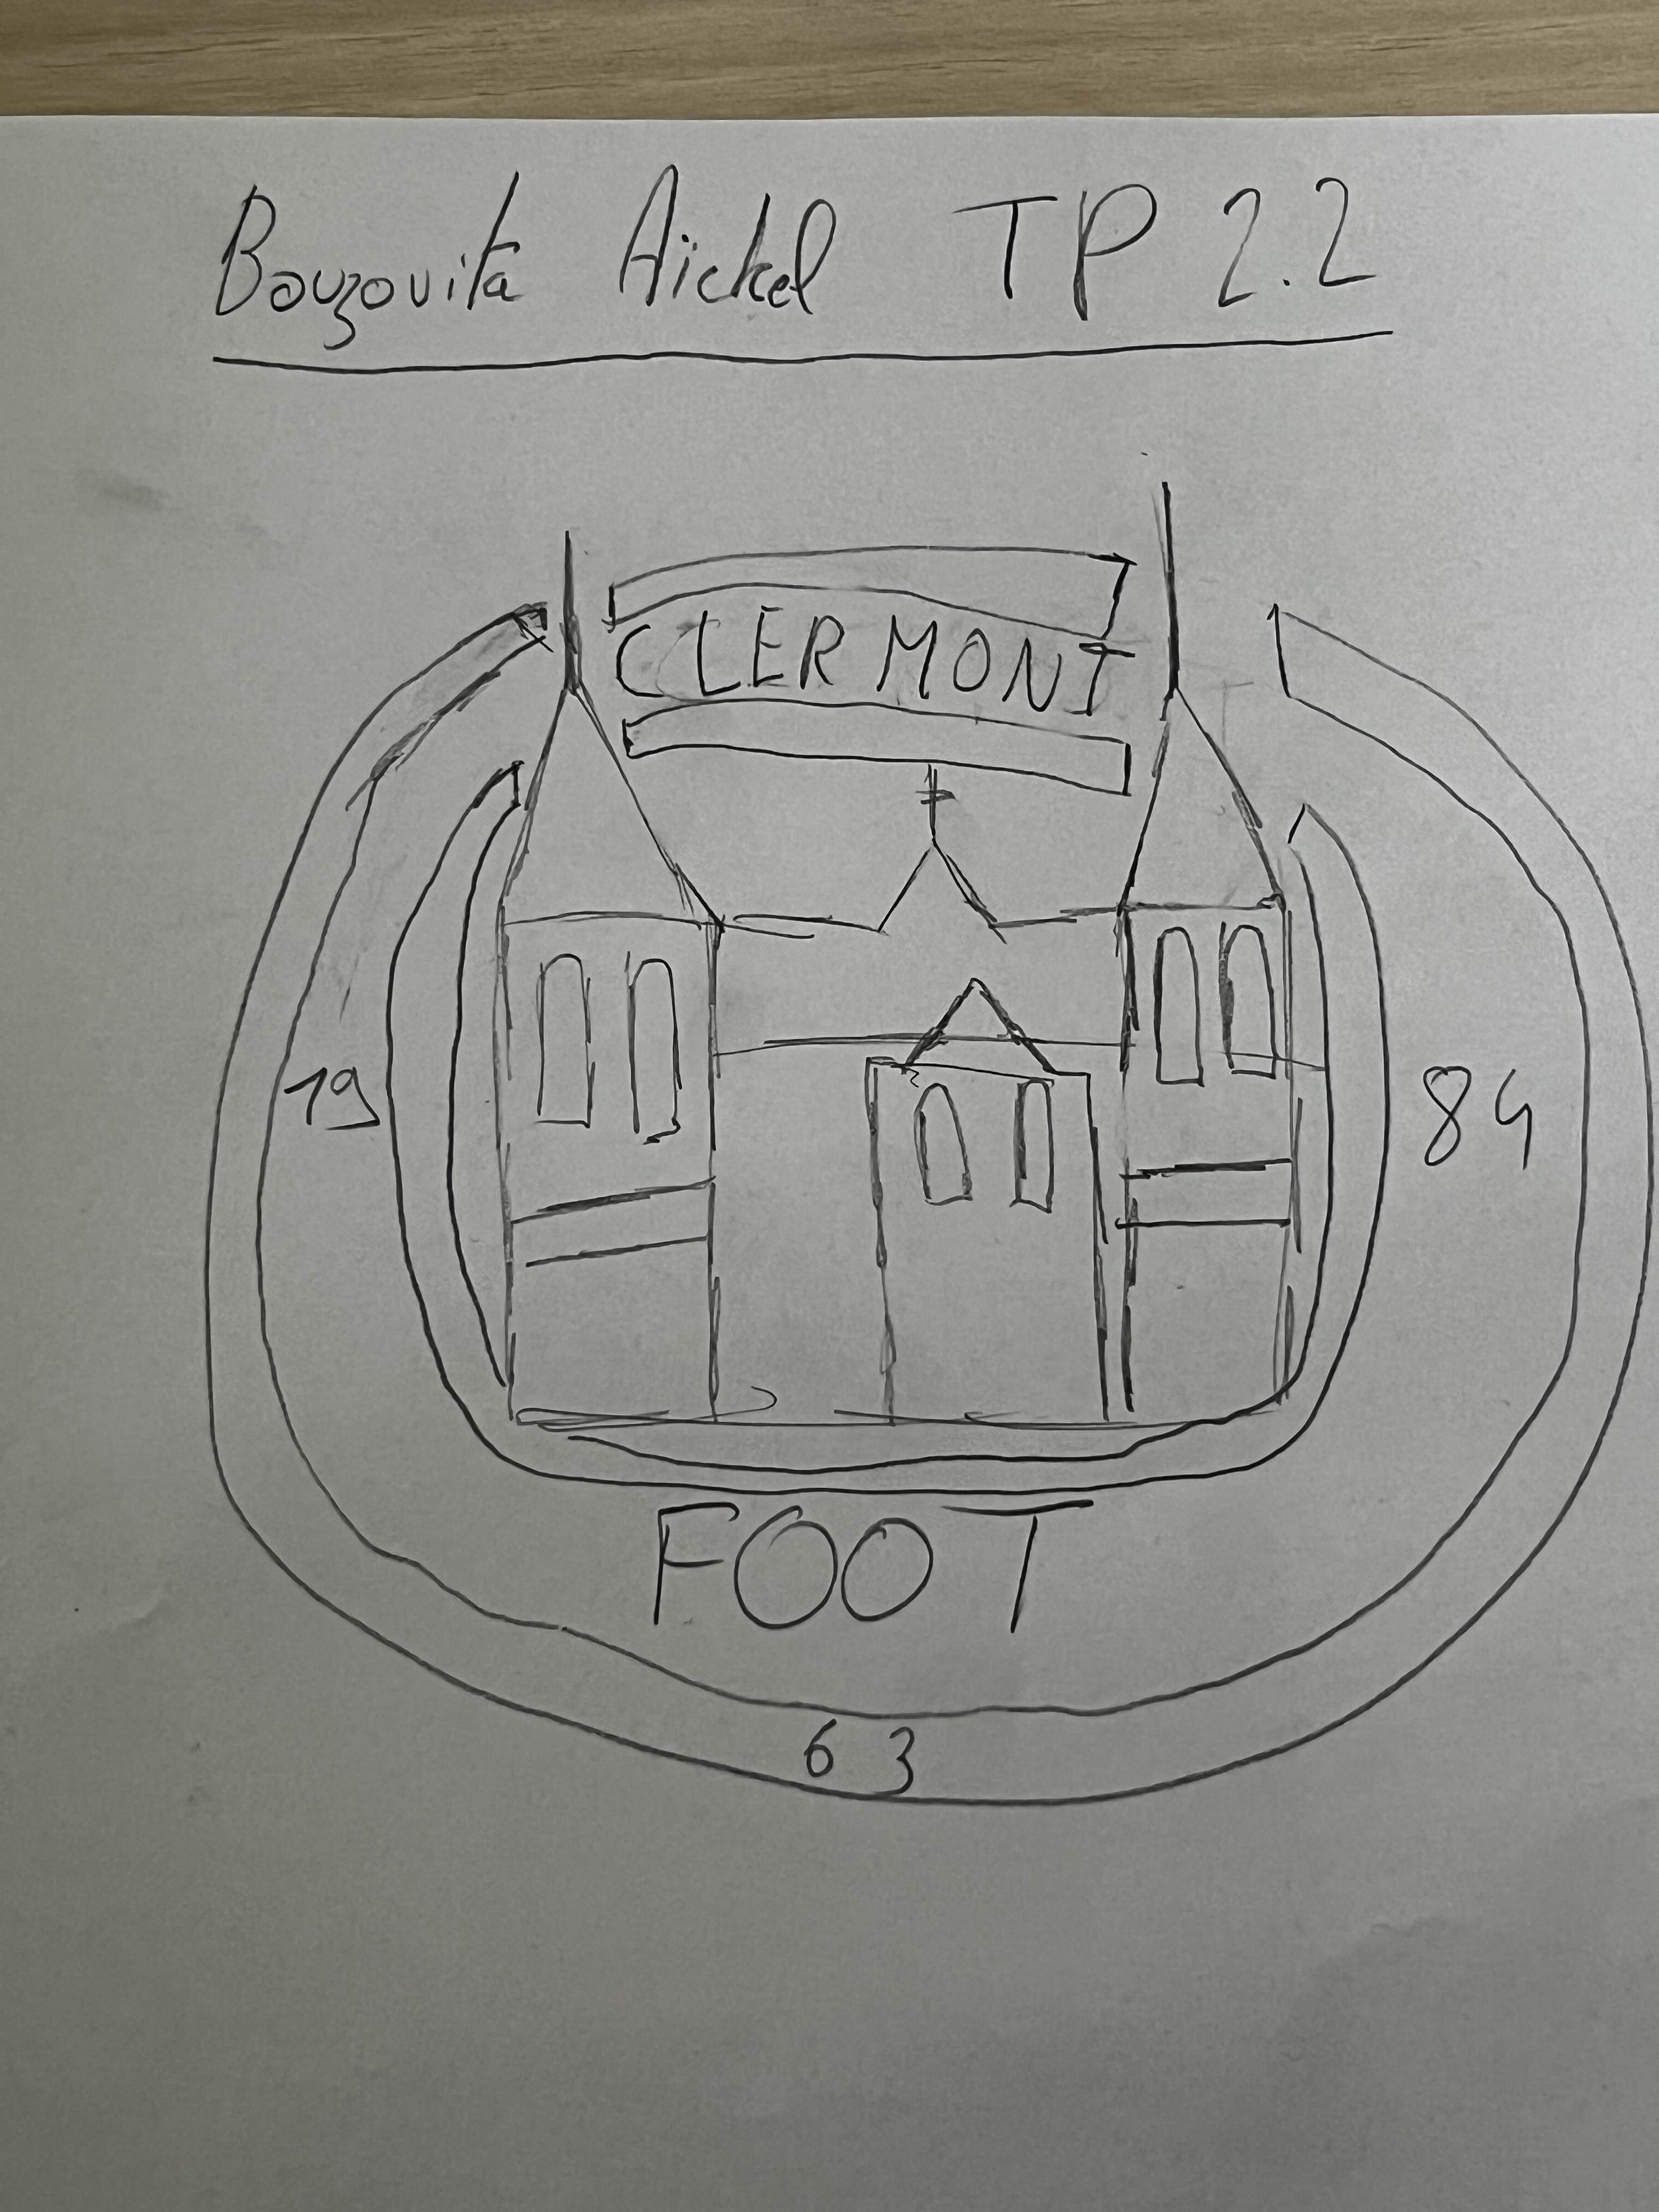 Bouzovita Aickel TP 2.2
CLERMONT
19 84
FOOT
63